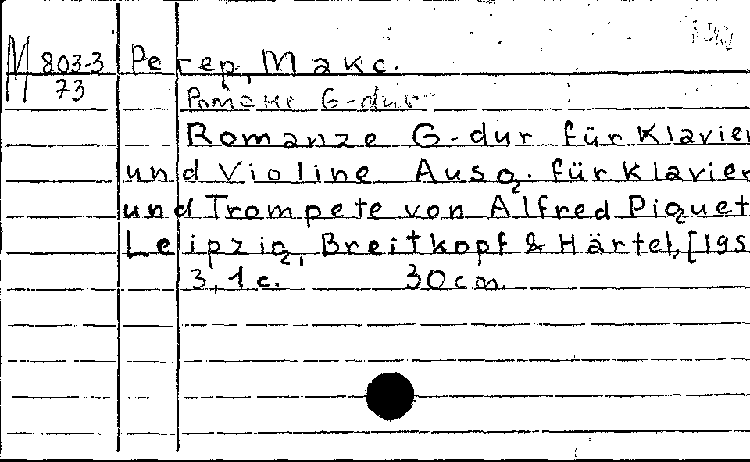 М 803-3
73
Регер, Макс.
Романс G-dur
Romanze G-dur für Klavier
und Violine Ausg. für Klavier
und Trompete von Alfred Piquet
Leipzig, Breitkopf & Härtel, [195
3, 1 с. 30 cm.